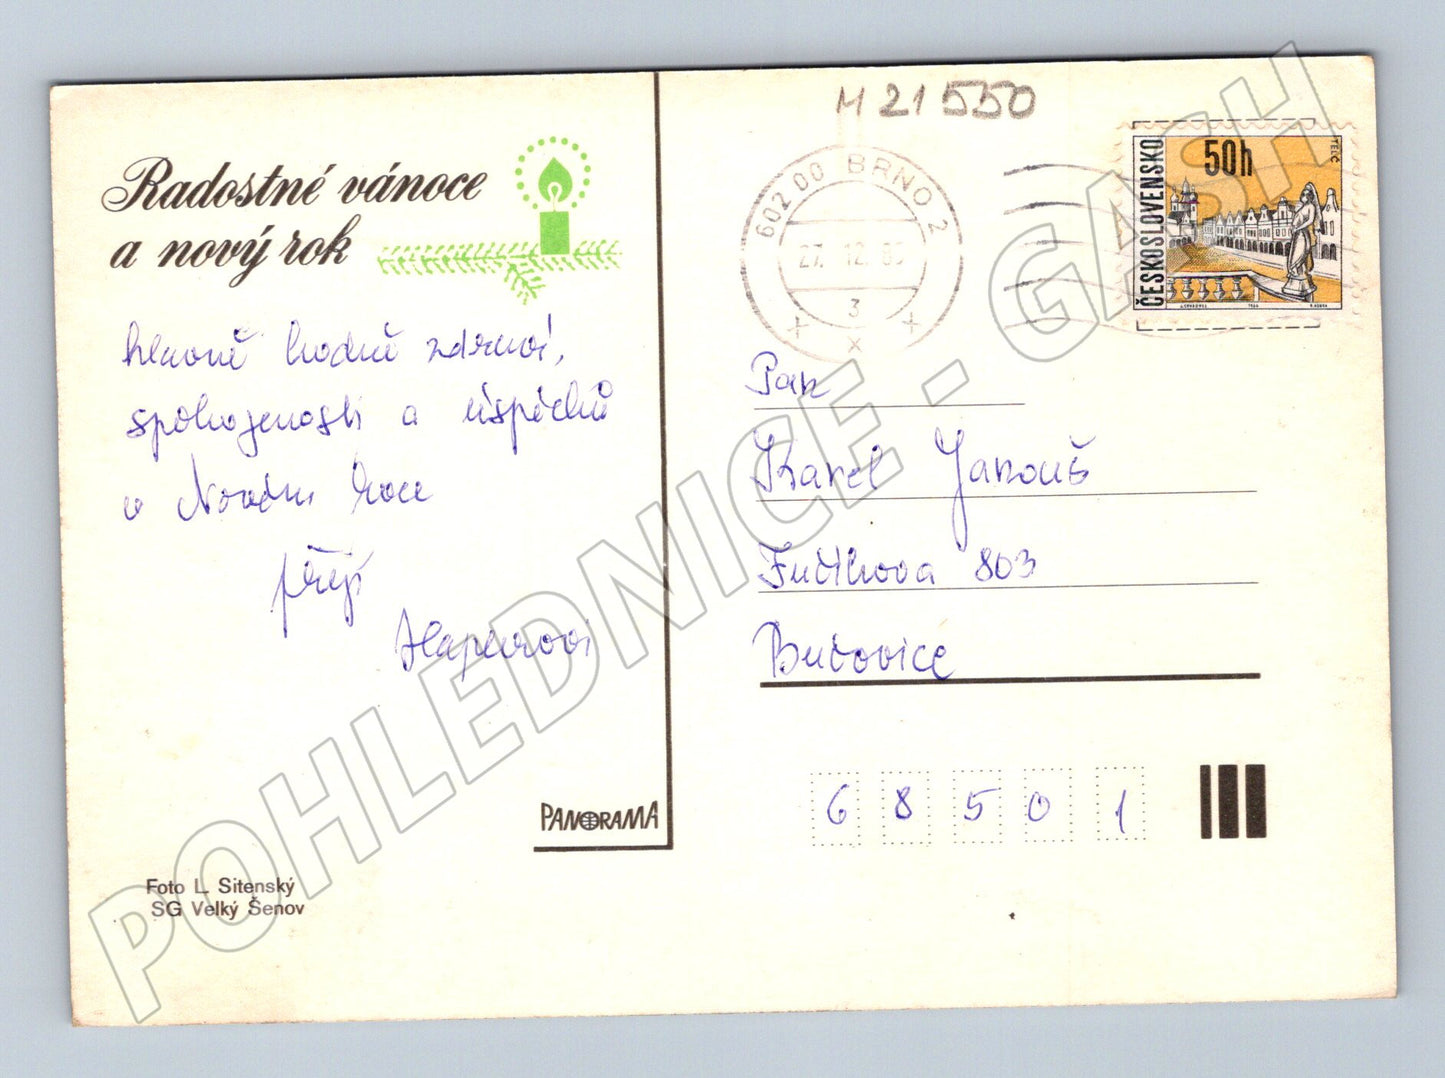 M 21550
Radostné vánoce
a nový rok
hlavně hodně zdraví,
spokojenosti a úspěchů
v Novém roce
přejí
602 00 BRNO 2
27. 12. 8
3
ČESKOSLOVENSKO
50h
TELČ
1966
Pan
Karel Janouš
Fučíkova 803
Bučovice
68501
PANORAMA
Foto L. Sitenský
SG Velký Šenov
POHLEDNICE - GASH